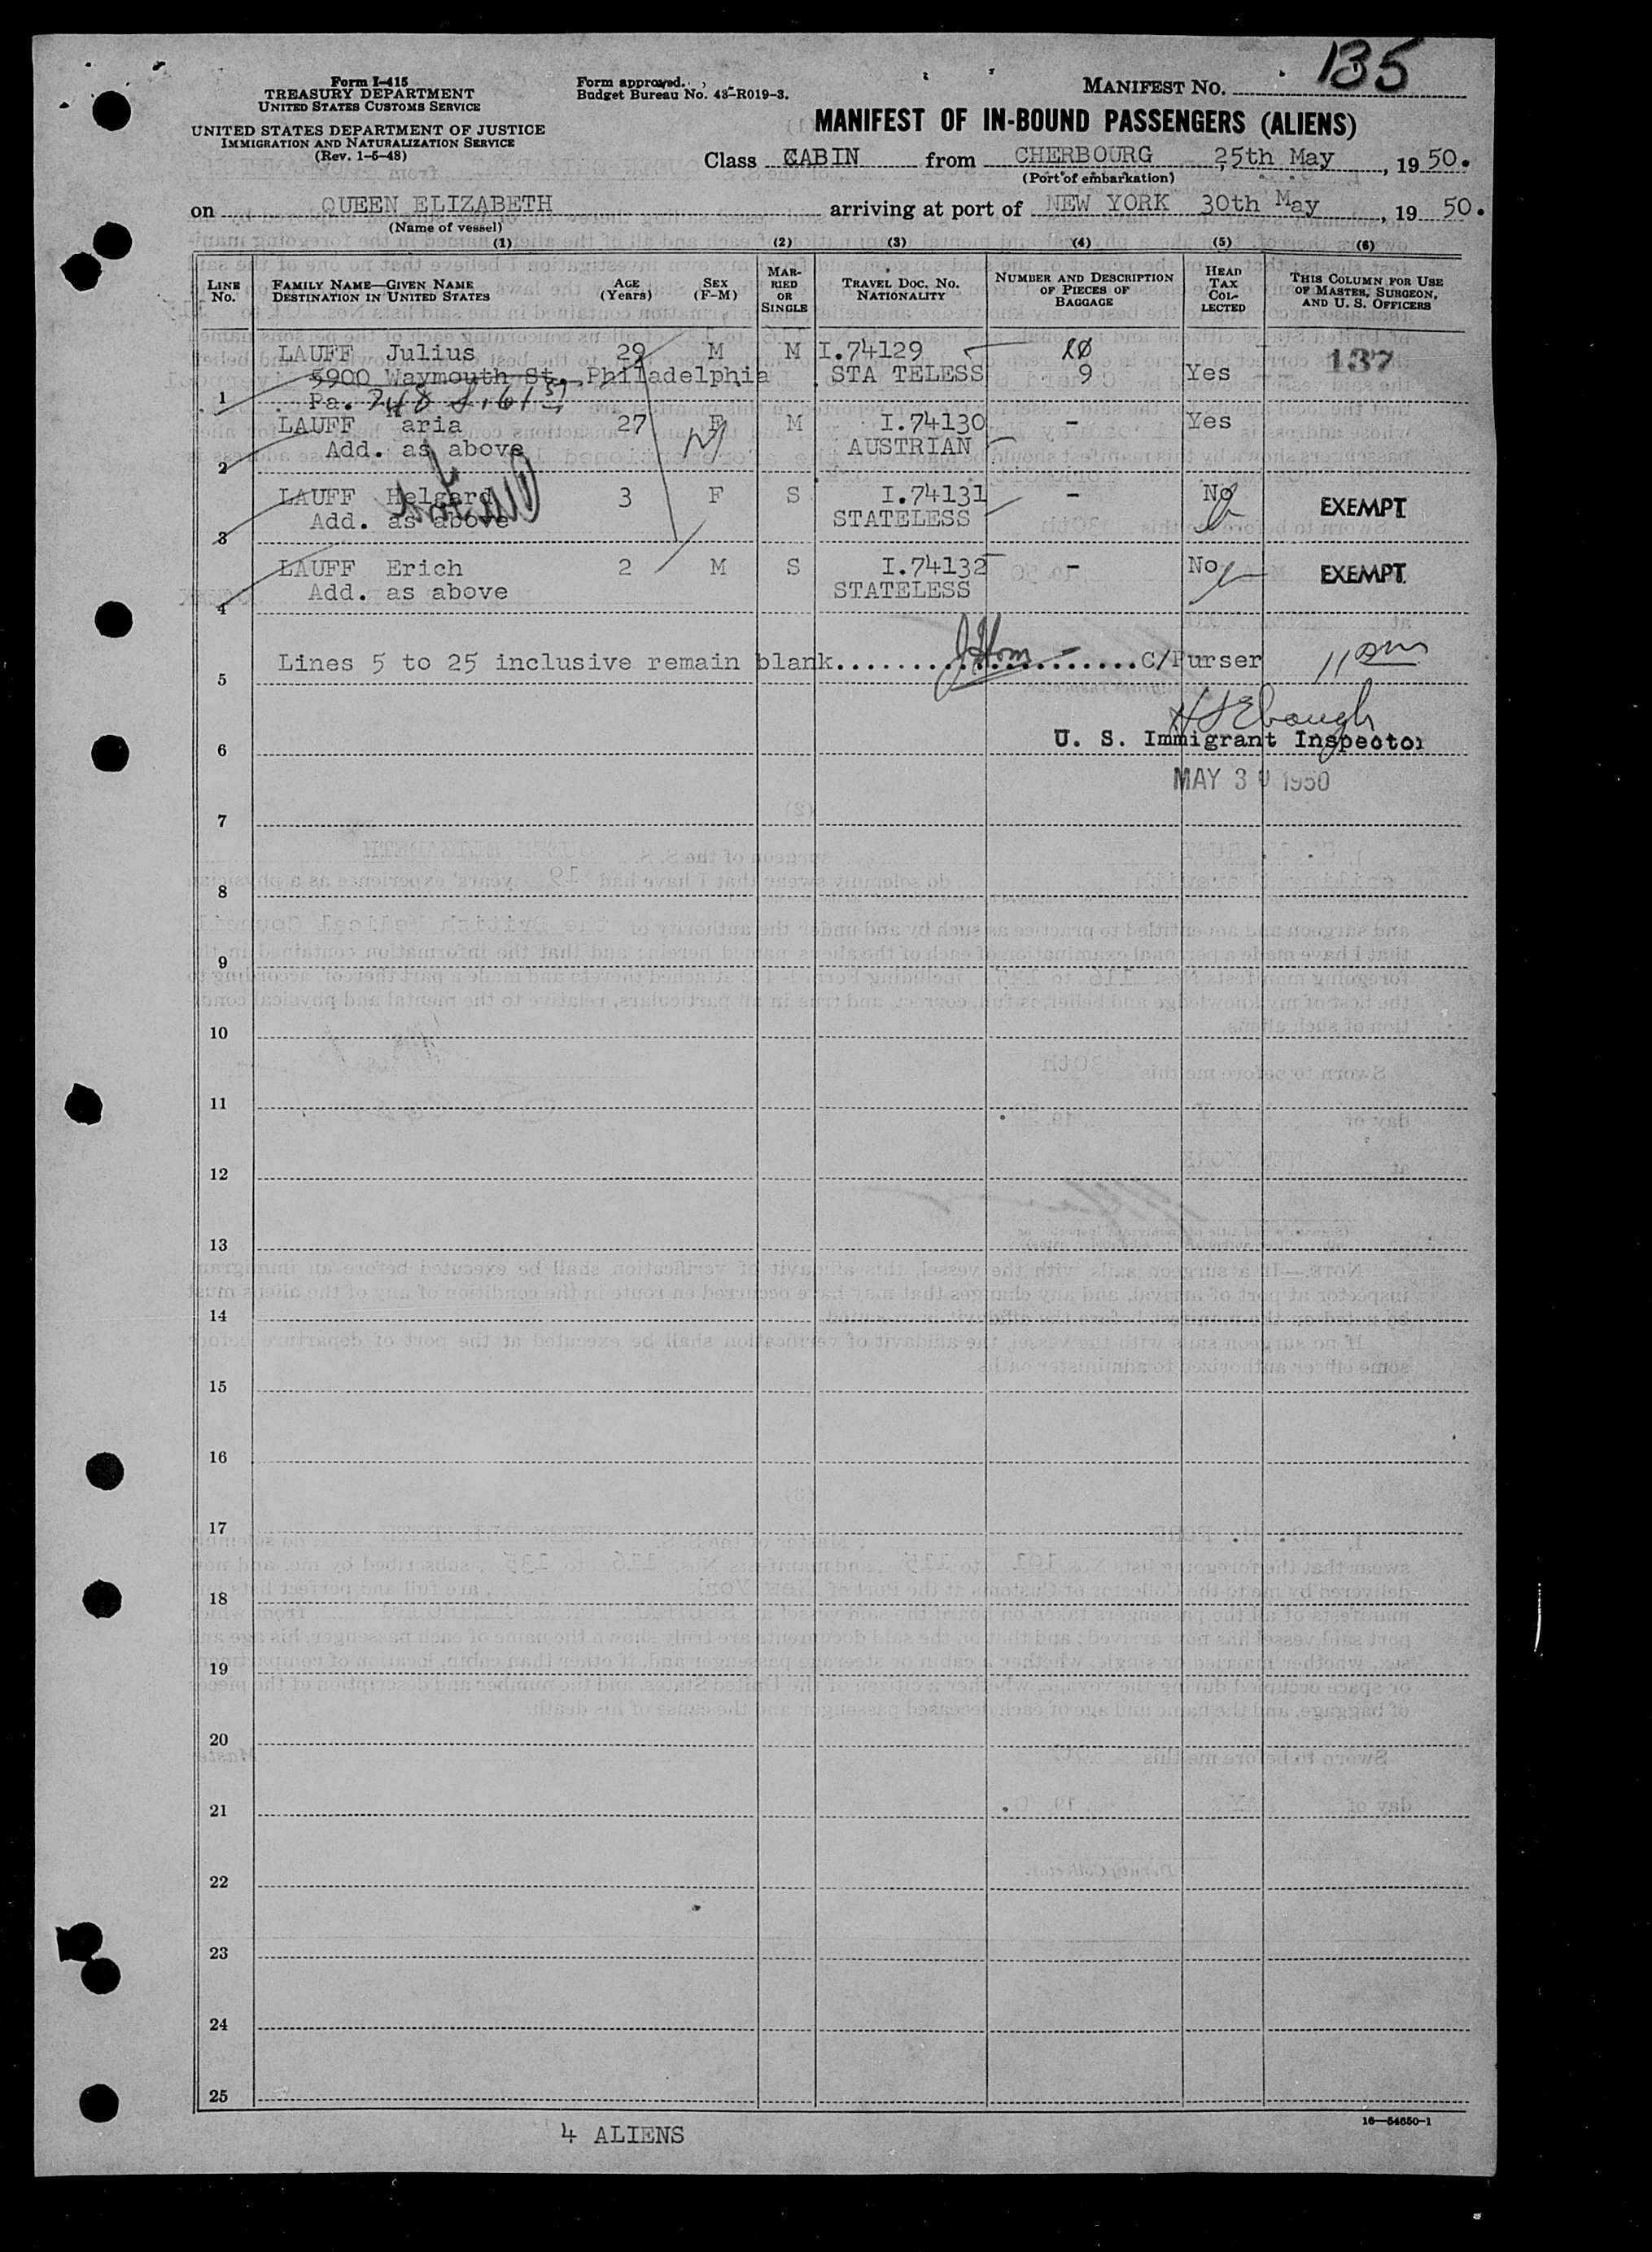 135
Form I-415
TREASURY DEPARTMENT
UNITED STATES CUSTOMS SERVICE
UNITED STATES DEPARTMENT OF JUSTICE
IMMIGRATION AND NATURALIZATION SERVICE
(Rev. 1-5-48)
Form approved.
Budget Bureau No. 43-R019-3.
MANIFEST NO.
MANIFEST OF IN-BOUND PASSENGERS (ALIENS)
Class CABIN from CHERBOURG, 25th May, 1950.
(Port of embarkation)
on QUEEN ELIZABETH arriving at port of NEW YORK 30th May, 1950.
(Name of vessel)
(1) (2) (3) (4) (5) (6)
LINE NO. FAMILY NAME—GIVEN NAME DESTINATION IN UNITED STATES AGE (YEARS) SEX (F-M) MARRIED OR SINGLE TRAVEL DOC. NO. NATIONALITY NUMBER AND DESCRIPTION OF PIECES OF BAGGAGE HEAD TAX COLLECTED THIS COLUMN FOR USE OF MASTER, SURGEON, AND U. S. OFFICERS
LAUFF Julius 29 M M I.74129 10 137
5900 Waymouth St. Philadelphia STA TELESS 9 Yes
1 Pa. 248 S. 61 St
LAUFF aria 27 F M I.74130 - Yes
2 Add. as above AUSTRIAN
LAUFF Helgard 3 F S I.74131 - No EXEMPT
3 Add. as above STATELESS
LAUFF Erich 2 M S I.74132 - No EXEMPT
4 Add. as above STATELESS
Lines 5 to 25 inclusive remain blank........................C/Purser
5
H S Ebaugh
6 U. S. Immigrant Inspector
MAY 30 1950
7
8
9
10
11
12
13
14
15
16
17
18
19
20
21
22
23
24
25
16—54650-1
4 ALIENS